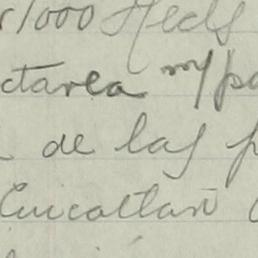 r/000 Heds
ctarea m/pa
de las p
Cuicatlan